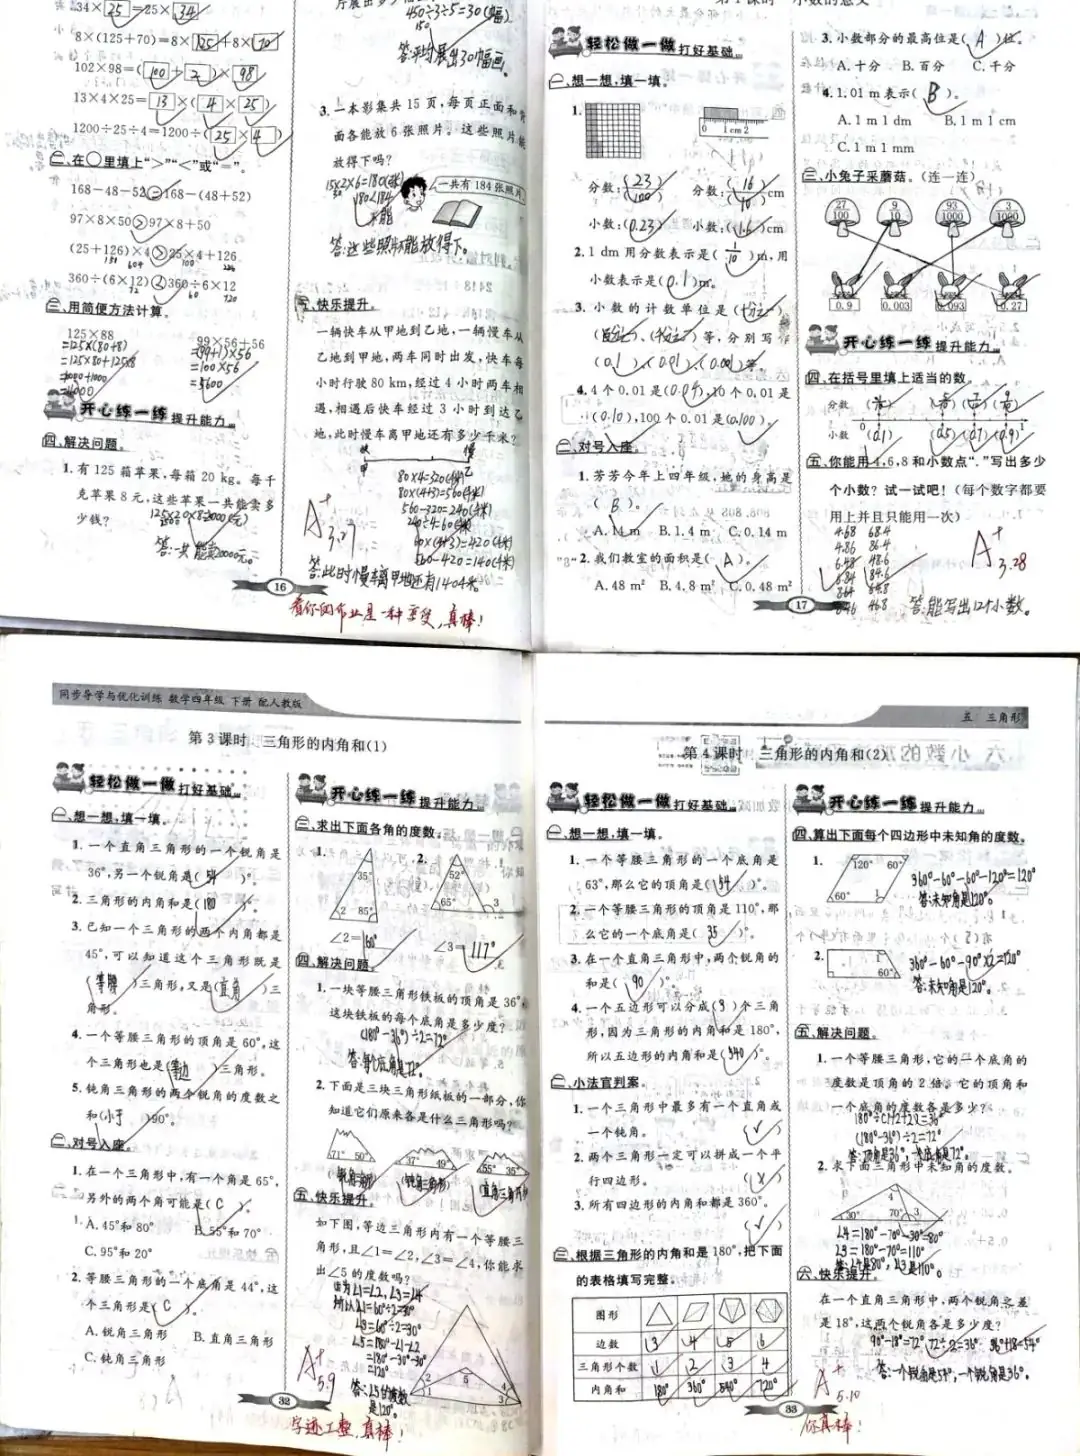 34×25=25×34
8×(125+70)=8×125+8×70
102×98=(100+2)×98
13×4×25=13×(4×25)
1200÷25÷4=1200÷(25×4)
二、在○里填上“>”“<”或“=”。
168-48-52=168-(48+52)
97×8×50>97×8+50
(25+126)×4>25×4+126
360÷(6×12)<360÷6×12
三、用简便方法计算。
125×88
=125×(80+8)
=125×80+125×8
99×56+56
=(99+1)×56
=100×56
=5600
开心练一练 提升能力
四、解决问题。
1.有125箱苹果,每箱20 kg。每千
克苹果8元,这些苹果一共能卖多
少钱?
16
450÷3÷5=30(幅)
答:平均展出30幅画。
3.一本影集共15页,每页正面和背
面各能放6张照片。这些照片能
放得下吗?
15×2×6=180(张)
180<184
不能
一共有184张照片
答:这些照片不能放得下。
五、快乐提升。
一辆快车从甲地到乙地,一辆慢车从
乙地到甲地,两车同时出发,快车每
小时行驶80 km,经过4小时两车相
遇,相遇后快车经过3小时到达乙
地,此时慢车离甲地还有多少千米?
快 慢
甲 乙
80×4=320(千米)
80×(4+3)=560(千米)
560-320=240(千米)
240÷4=60(千米)
60×(4+3)=420(千米)
560-420=140(千米)
答:此时慢车离甲地还有140千米。
A+
3.27
看你的作业是一种享受,真棒!
轻松做一做 打好基础
一、想一想,填一填。
1.
0 1cm 2
分数:(23/100) 分数:(16/10)cm
小数:(0.23) 小数:(1.6)cm
2.1 dm用分数表示是(1/10)m,用
小数表示是(0.1)m。
3.小数的计数单位是(十分之一)
(百分之一)、(千分之一)等,分别写作
(0.1)、(0.01)、(0.001)等。
4.4个0.01是(0.04),10个0.01是
(0.10),100个0.01是(0.100)。
二、对号入座。
1.芳芳今年上四年级,她的身高是
(B)。
A.14 m B.1.4 m C.0.14 m
2.我们教室的面积是(A)。
A.48 m² B.4.8 m² C.0.48 m²
17
3.小数部分的最高位是(A)位。
A.十分 B.百分 C.千分
4.1.01 m表示(B)。
A.1 m 1 dm B.1 m 1 cm
C.1 m 1 mm
三、小兔子采蘑菇。(连一连)
27/100 9/10 93/1000 3/1000
0.9 0.003 0.093 0.27
开心练一练 提升能力
四、在括号里填上适当的数。
分数
小数 (0.1) (0.5) (0.7) (0.9)
五、你能用4,6,8和小数点“.”写出多少
个小数?试一试吧!(每个数字都要
用上并且只能用一次)
4.68 68.4
4.86 86.4
6.48 48.6
6.84 84.6
8.64 64.8
8.46 46.8
答:能写出12个小数。
A+
3.28
同步导学与优化训练 数学四年级 下册 配人教版
第3课时 三角形的内角和(1)
轻松做一做 打好基础
一、想一想,填一填。
1.一个直角三角形的一个锐角是
36°,另一个锐角是(54)°。
2.三角形的内角和是(180)°。
3.已知一个三角形的两个内角都是
45°,可以知道这个三角形既是
(等腰)三角形,又是(直角)三
角形。
4.一个等腰三角形的顶角是60°,这
个三角形也是(等边)三角形。
5.钝角三角形的两个锐角的度数之
和(小于)90°。
二、对号入座。
1.在一个三角形中,有一个角是65°,
另外的两个角可能是(C)。
A.45°和80° B.55°和70°
C.95°和20°
2.等腰三角形的一个底角是44°,这
个三角形是(C)。
A.锐角三角形 B.直角三角形
C.钝角三角形
32
开心练一练 提升能力
三、求出下面各角的度数。
1. 2.
35° 2 85°
52° 65° 3
∠2=60° ∠3=117°
四、解决问题。
1.一块等腰三角形铁板的顶角是36°,
这块铁板的每个底角是多少度?
(180°-36°)÷2=72°
答:每个底角是72°。
2.下面是三块三角形纸板的一部分,你
知道它们原来各是什么三角形吗?
71° 50° 37° 49° 55° 35°
(锐角三角形) (钝角三角形) (直角三角形)
五、快乐提升。
如下图,等边三角形内有一个等腰三
角形,且∠1=∠2,∠3=∠4,你能求
出∠5的度数吗?
因为∠1=∠2,∠3=∠4
所以∠1=60°÷2=30°
∠3=60°÷2=30°
∠5=180°-∠1-∠2
=180°-30°-30°
=120°
答:∠5的度数
是120°。
A+
5.9
字迹工整,真棒!
五 三角形
第4课时 三角形的内角和(2)
轻松做一做 打好基础
一、想一想,填一填。
1.一个等腰三角形的一个底角是
63°,那么它的顶角是(54)°。
2.一个等腰三角形的顶角是110°,那
么它的一个底角是(35)°。
3.在一个直角三角形中,两个锐角的
和是(90)°。
4.一个五边形可以分成(3)个三角
形,因为三角形的内角和是180°,
所以五边形的内角和是(540)°。
二、小法官判案。
1.一个三角形中最多有一个直角或
一个钝角。 (√)
2.两个三角形一定可以拼成一个平
行四边形。 (×)
3.所有四边形的内角和都是360°。
(√)
三、根据三角形的内角和是180°,把下面
的表格填写完整。
图形
边数 3 4 5 6
三角形个数 1 2 3 4
内角和 180° 360° 540° 720°
33
开心练一练 提升能力
四、算出下面每个四边形中未知角的度数。
1. 120° 60° 60°
360°-60°-60°-120°=120°
答:未知角是120°。
2. 60°
360°-60°-90°×2=120°
答:未知角是120°。
五、解决问题。
1.一个等腰三角形,它的一个底角的
度数是顶角的2倍,它的顶角和
一个底角的度数各是多少?
180°÷(1+2+2)=36°
(180°-36°)÷2=72°
答:顶角是36°,一个底角是72°。
2.求下面三角形中未知角的度数。
30° 4 70° 3
∠4=180°-70°-30°=80°
∠3=180°-70°=110°
答:∠4是80°,∠3是110°。
六、快乐提升。
在一个直角三角形中,两个锐角之差
是18°,这两个锐角各是多少度?
90°-18°=72° 72°÷2=36° 36°+18°=54°
答:一个锐角是54°,一个锐角是36°。
A+
5.10
你真棒!